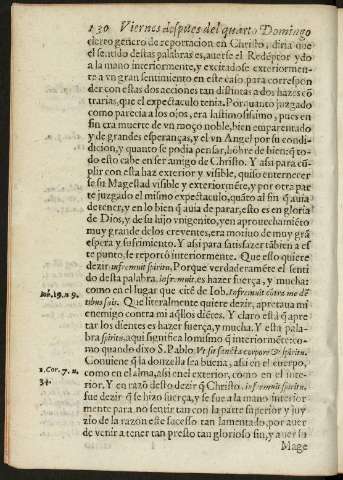 130 Viernes despues del quarto Domingo
cierto genero de reportacion en Christo, diria que
el sentido destas palabras es, auerse el Redẽptor ydo
a la mano interiormente, y excitadose exteriormen-
te a vn gran sentimiento en este caso, para correspon
der con estas dos acciones tan distintas a dos hazes cõ
trarias, que el expectaculo tenia. Porquanto juzgado
como parecia a los ojos, era lastimosissimo, pues en
fin era muerte de vn moço noble, bien emparentado
y de grandes esperanças, y el vn Angel por su condi-
cion, y quanto se podia pensar, hõbre de bien: q̃ to-
do esto cabe en ser amigo de Christo. Y asi para cũ-
plir con esta haz exterior y visible, quiso enternecer
se su Magestad visible y exteriormẽte, y por otra par
te juzgado el mismo expectaculo, quãto al fin q̃ auia
de tener, y en lo bien q̃ auia de parar, esto es en gloria
de Dios, y de su hijo vnigenito, y en aprouechamiẽto
muy grande de los creyentes, era motiuo de muy grã
espera y sufrimiento. Y asi para satisfazer tãbien a es
te punto, se reportò interiormente. Que esso quiere
dezir infremuit spiritu. Porque verdaderamẽte el senti
do desta palabra, infremuit es hazer fuerça, y mucha:
como en el lugar que citè de Iob. Infremuit cõtra me dẽ
Iob. 19. n 9.
tibus suis. Que literalmente quiere dezir, apretaua mi
enemigo contra mi aq̃llos diẽtes. Y claro està q̃ apre
tar los dientes es hazer fuerça, y mucha. Y esta pala-
bra spiritu, aqui significa lo mismo q̃ interiormẽte: co-
mo quando dixo S. Pablo. Vt sit sancta corpore & spiritu.
1. Cor. 7. n.
34.
Conuiene q̃ la donzella sea buena, asi en el cuerpo,
como en el alma, asi en el exterior, como en el inte-
rior. Y en razõ desto dezir q̃ Christo, infremuit spiritu,
fue dezir q̃ se hizo fuerça, y se fue a la mano interior
mente para no sentir tan con la parte superior y juy
zio de la razon este sucesso tan lamentado, por auer
de venir a tener tan presto tan glorioso fin, y auer su
Mage